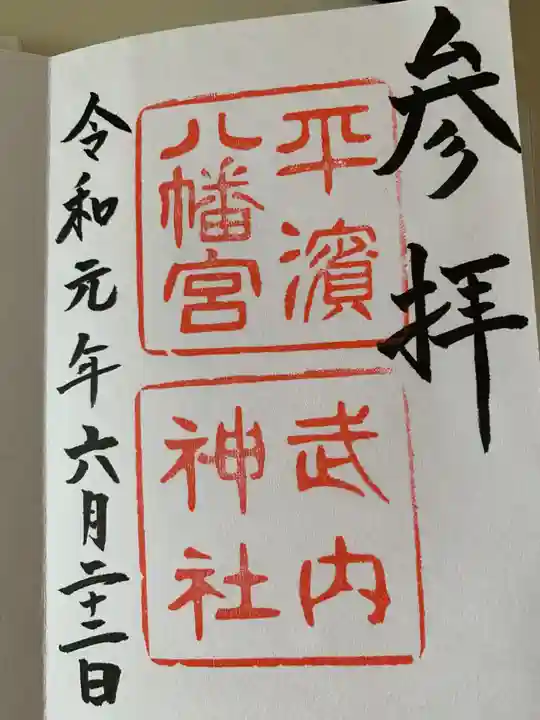 参拝
平濱
八幡宮
武内
神社
令和元年六月二十二日